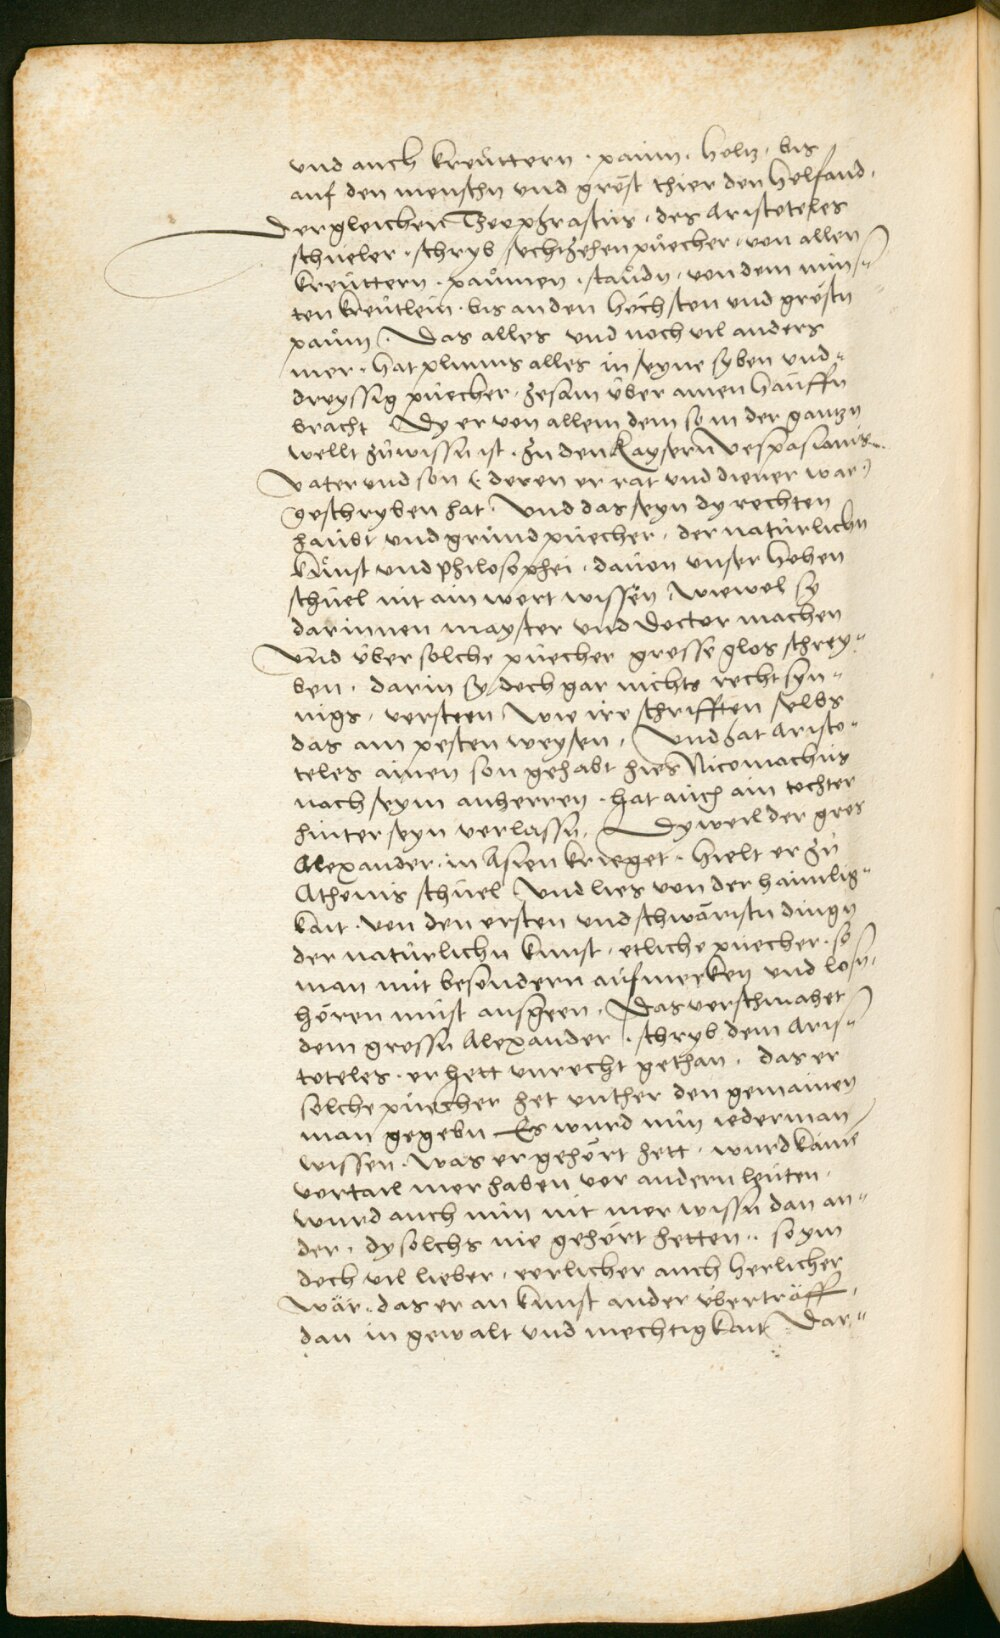 vnd auch kreuttern · paum · holtz · bis
auf den menschn vnd gröst thier den helfand ·
Dergleichen Theophrastus · des Aristoteles
schueler · schryb sechtzehen püecher · von allen
kreüttern · paümen · staudn · von dem min⸗
ten kreutlein · bis an den höchsten vnd gröstn
paum · Das alles vnd noch vil anders
mer · hat plinius alles in seyne syben vnd⸗
dreyssig püecher · zesam über ainen hauffn
bracht Dy er von allem dem so in der gantzn
wellt zuwissn ist · zu den Kaysern Vespasianis
Vater vnd son (deren er rat vnd diener war)
geschryben hat · Vnd das seyn dy rechten
haubt vnd grundpüecher · der naturlichn
kunst vnd philosophei · dauon vnser hohen
schuel nit ain wort wissen Wiewol sy
darinnen mayster vnd Doctor machen
Vnd über solche püecher grosse glos schrey⸗
ben · darin sy doch gar nichts recht syn⸗
nigs · versteen Wie ire schrifften selbs
das am pesten weysen · Vnd hat Aristo⸗
teles ainen son gehabt hies Nicomachus
nach seym anherren · hat auch ain tochter
hinter seyn verlassn · Dyweil der gros
Alexander · in Asien krieget · hielt er zu
Athenis schuel Vnd lies von der haimlig⸗
kait · von den ersten vnd schwäristn dingn
der natürlichn kunst · etliche püecher · so
man mit besondern aufmerken vnd losn ·
hören must ausgeen · Das verschmahet
dem grossn Alexander · schryb dem Aris⸗
toteles · er hett vnrecht gethan · das er
solche püecher het vnther den gemainen
man gegebn Es wurd nun iederman
wissen · was er gehört hett · wurd kaine
vortail mer haben vor andern leuten ·
wurd auch nun nit mer wissn dan an⸗
der · dy solchs nie gehört hetten · so ym
doch vil lieber · eerlicher auch herlicher
Wär · das er an kunst ander überträff ·
dan in gewalt vnd mechtigkait Dar⸗